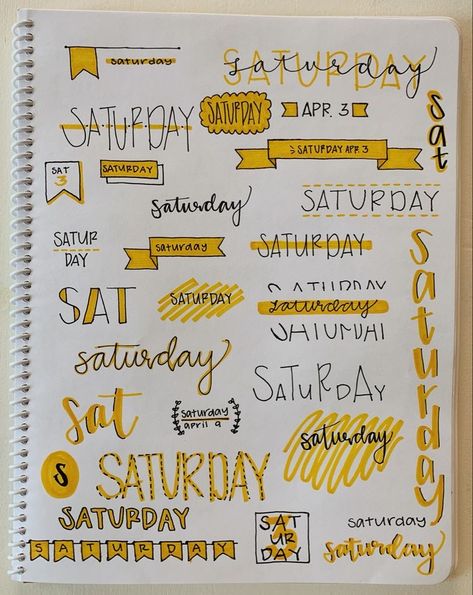 saturday
SATURDAY
saturday
SATURDAY
SATURDAY
APR. 3
sat
SATURDAY APR. 3
SAT
3
SATURDAY
saturday
SATURDAY
SATUR
DAY
saturday
SATURDAY
SAT
SATURDAY
SATURDAY
saturday
SATURDAY
saturday
saturday
SATURDAY
sat
saturday
april 9
saturday
S
SATURDAY
SATURDAY
SAT
UR
DAY
saturday
SATURDAY
saturday